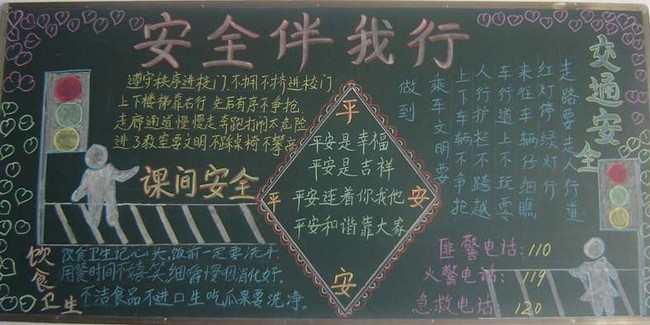 安全伴我行
遵守秩序进校门,不拥不挤进校门
上下楼梯靠右行 先后有序不争抢
走廊通道慢慢走 奔跑打闹太危险
进了教室要文明 不踩桌椅不攀高
课间安全
平
平
安
安
平安是幸福
平安是吉祥
平安连着你我他
平安和谐靠大家
交通安全
走路要走人行道
红灯停绿灯行
来往车辆仔细瞧
车行道上不玩耍
人行护栏不跨越
上下车辆不争抢
乘车文明要
做到
匪警电话:110
火警电话:119
急救电话 120
饮食卫生
饮食卫生记心头,饭前一定要洗手.
用餐时间不嬉笑,细嚼慢咽消化好.
不洁食品不进口 生吃瓜果要洗净.